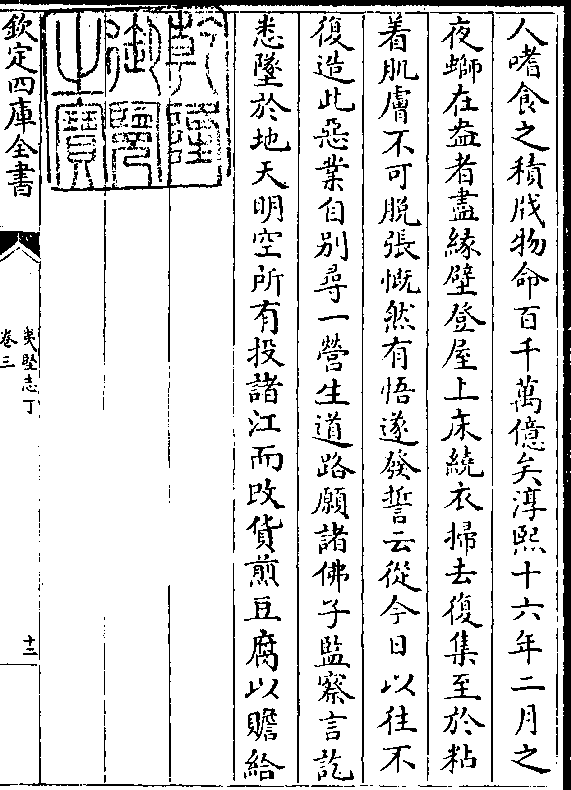 人嗜食之積戕物命百千萬億矣淳熙十六年二月之
夜螄在盎者盡緣壁登屋上床繞衣掃去復集至於粘
着肌膚不可脱張慨然有悟遂發誓云從今日以往不
復造此惡業自别尋一營生道路願諸佛子監察言訖
悉墜於地天明空所有投諸江而改貨煎豆腐以贍給
乾隆
御覽
之寶
欽定四庫全書
夷堅志丁
卷三
十二